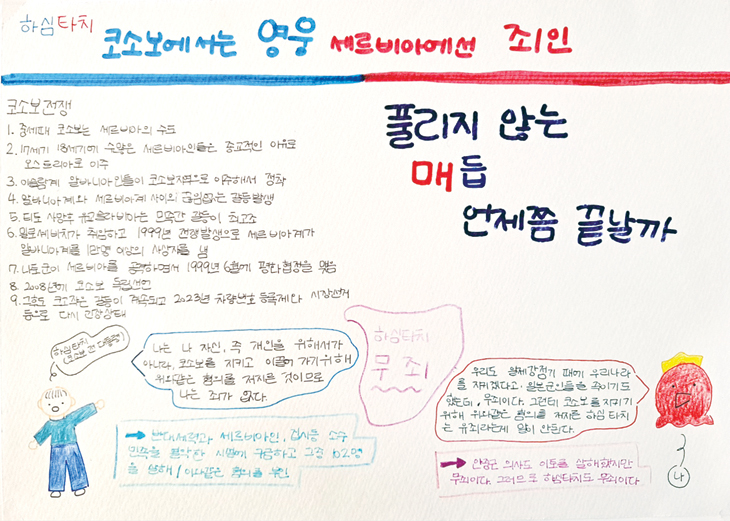 하심타치
코소보에서는 영웅 세르비아에선 죄인
코소보전쟁
풀리지 않는
매듭
언제쯤 끝날까
1. 중세때 코소보는 세르비아의 수도
2. 17세기 18세기에 수많은 세르비아인들은 종교적인 이유로
오스트리아로 이주
3. 이슬람계 알바니아인들이 코소보지역으로 이주해서 정착
4. 알바니아계와 세르비아계 사이의 끊임없는 갈등발생
5. 티토 사망후 유고슬라비아는 민족간 갈등이 최고조
6. 밀로셰비치가 취임하고 1999년 전쟁발생으로 세르비아계가
알바니아계를 1만명 이상의 사상자를 냄
7. 나토군이 세르비아를 공격하면서 1999년 6월에 평화협정을 맺음
8. 2008년에 코소보 독립선언
9. 그후도 크고작은 갈등이 계속되고 2023년 차량번호 등록제와 시장선거
등으로 다시 긴장상태
하심타치
(코소보 전 대통령)
나는 나 자신, 즉 개인을 위해서가
아니라, 코소보를 지키고 이끌어 가기위해
위와같은 혐의를 저지른 것이므로
나는 죄가 없다.
하심타치
무죄
우리도 일제강점기 때에 우리나라
를 지키겠다고 일본군인들을 죽이기도
했는데, 무죄이다. 그런데 코소보를 지키기
위해 위와같은 혐의를 저지른 하심 타치
는 유죄라는게 말이 안된다.
➡ 반대세력과 세르비아인, 집시등 소수
민족을 불법적 시설에 구금하고 그중 102명
을 살해 / 이와같은 혐의를 부인
➡ 안중근 의사도 이토를 살해했지만
무죄이다. 그러므로 하심타치도 무죄이다
나